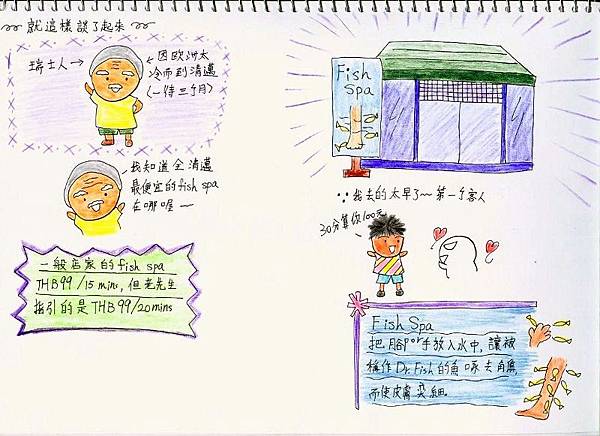 就這樣談了起來
瑞士人→
←因歐洲太
冷而到清邁
(一待三個月)
我知道全清邁
最便宜的fish spa
在哪喔~
一般店家的fish spa
THB99/15 mins, 但老先生
指引的是THB99/20mins
Fish
Spa
∵我去的太早了~第一个客人
30分算你100元
Fish Spa
把腳or手放入水中,讓被
稱作Dr. Fish的魚啄去角質
而使皮膚奐細。